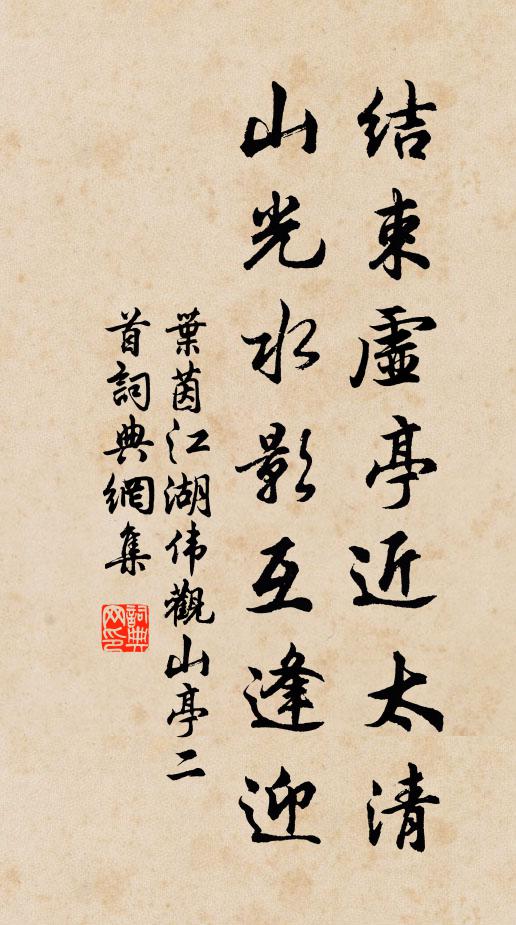 結束虛亭近太清
山光水影互逢迎
葉茵江湖伟觀山亭二
首詞典網集
詞典
网印